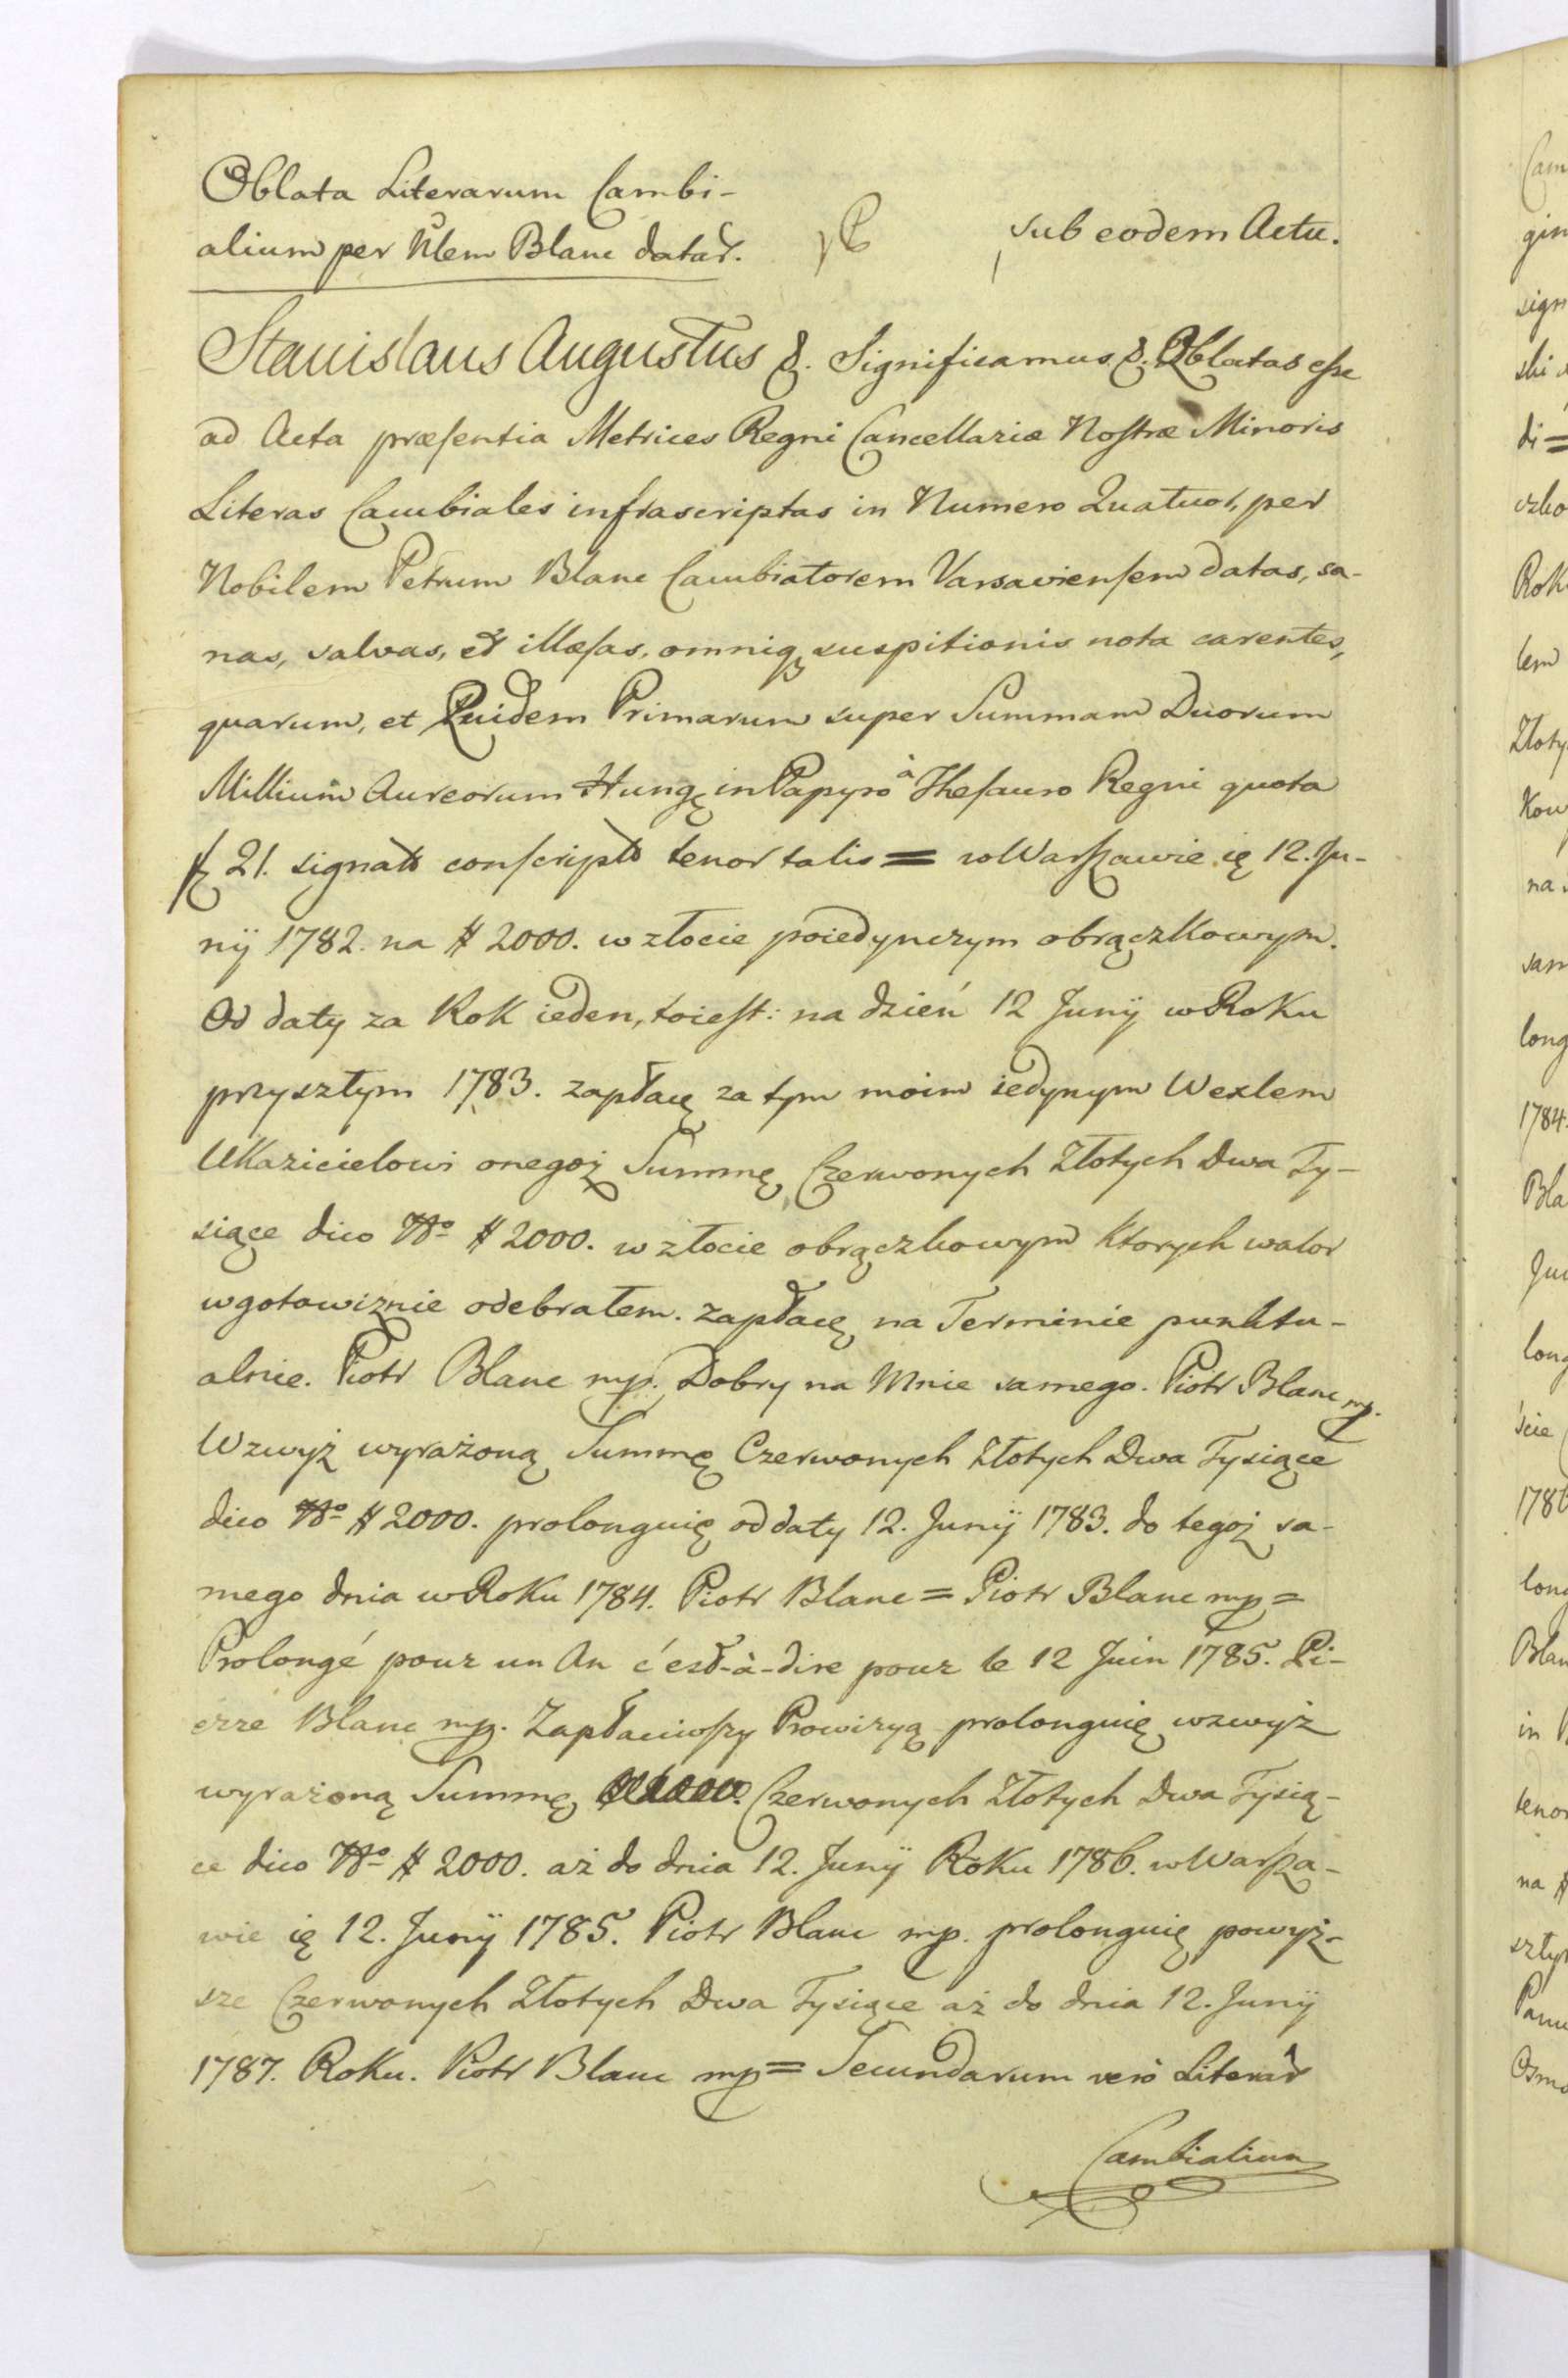 Oblata Literarum Cambi-
alium per Nlem Blanc datar.
sub eodem Actu.
Stanislaus Augustus &. Significamus &. Oblatas eſse
ad Acta præſentia Metrices Regni Cancellariæ Noſtræ Minoris
Literas Cambiales infrascriptas in Numero Quatuor, per
Nobilem Petrum Blanc Cambiatorem Varsavienſem datas, sa-
nas, salvas, et illæſas, omniqꝫ suspitionis nota carentes,
quarum, et Quidem Primarum super Summam Duorum
Millium Aureorum Hung: in Papyro à Theſauro Regni quota
21. signato conſcripto tenor talis = w Warſzawie ię 12. Ju-
nÿ 1782. na # 2000. w złocie poiedynczym obrączkowym.
Od daty za Rok ieden, toieſt: na dzień 12 Junÿ w Roku
przyszłym 1783. zapłacę za tym moim iedynym Wexlem
Ukazicielowi onegoż Summę Czerwonych Złotych Dwa Ty-
siące dico No # 2000. w złocie obrączkowym ktorych walor
w gotowiznie odebrałem. zapłacę na Terminie punktu-
alnie. Piotr Blanc mp. Dobry na Mnie samego. Piotr Blanc mp.
Wzwyż wyrażoną Summę Czerwonych Złotych Dwa Tysiące
dico No # 2000. prolonguię od daty 12. Junÿ 1783. do tegoż sa-
mego dnia w Roku 1784. Piotr Blanc = Piotr Blanc mp =
Prolongé pour un An c'est-à-dire pour le 12 Juin 1785. Pi-
erre Blanc mp. Zapłaciwſzy Prowizyą prolonguię wzwyż
wyrażoną Summę Czerwonych Złotych Dwa Tysią-
ce dico No # 2000. aż do dnia 12. Junÿ Roku 1786. w Warſza-
wie ię 12. Junÿ 1785. Piotr Blanc mp. prolonguię powyż-
sze Czerwonych Złotych Dwa Tysiące aż do dnia 12. Junÿ
1787. Roku. Piotr Blanc mp = Secundarum verò Literar
Cambialium